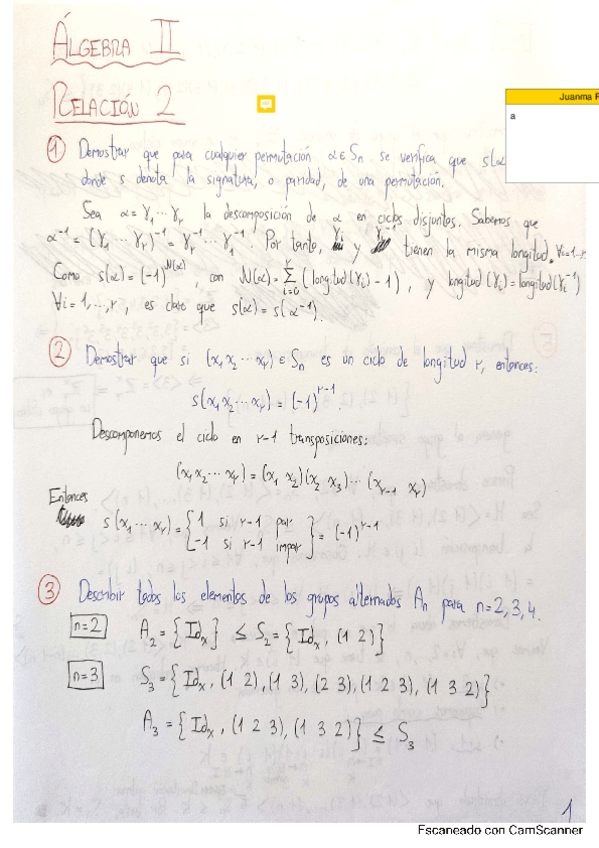 ÁLGEBRA II
RELACIÓN 2
Juanma
a
① Demostrar que para cualquier permutación α ∈ Sn se verifica que s(α
donde s denota la signatura, o paridad, de una permutación.
Sea α = γ₁ ··· γᵣ la descomposición de α en ciclos disjuntos. Sabemos que
α⁻¹ = (γ₁ ··· γᵣ)⁻¹ = γᵣ⁻¹ ··· γ₁⁻¹. Por tanto, γᵢ y γᵢ⁻¹ tienen la misma longitud, ∀i=1··r.
Como s(α) = (-1)^N(α), con N(α) = Σ_{i=0}^{r} (longitud(γᵢ) - 1), y longitud(γᵢ) = longitud(γᵢ⁻¹)
∀i = 1, ..., r, es claro que s(α) = s(α⁻¹).
② Demostrar que si (x₁ x₂ ··· xᵣ) ∈ Sn es un ciclo de longitud r, entonces:
s(x₁ x₂ ··· xᵣ) = (-1)^{r-1}.
Descomponemos el ciclo en r-1 transposiciones:
(x₁ x₂ ··· xᵣ) = (x₁ x₂)(x₂ x₃) ··· (x_{r-1} xᵣ)
Entonces
s(x₁ ··· xᵣ) = { 1 si r-1 par
-1 si r-1 impar } = (-1)^{r-1}
③ Describir todos los elementos de los grupos alternados An para n=2,3,4.
n=2 A₂ = {Idₓ} ≤ S₂ = {Idₓ, (1 2)}
n=3 S₃ = {Idₓ, (1 2), (1 3), (2 3), (1 2 3), (1 3 2)}
A₃ = {Idₓ, (1 2 3), (1 3 2)} ≤ S₃
1
Escaneado con CamScanner